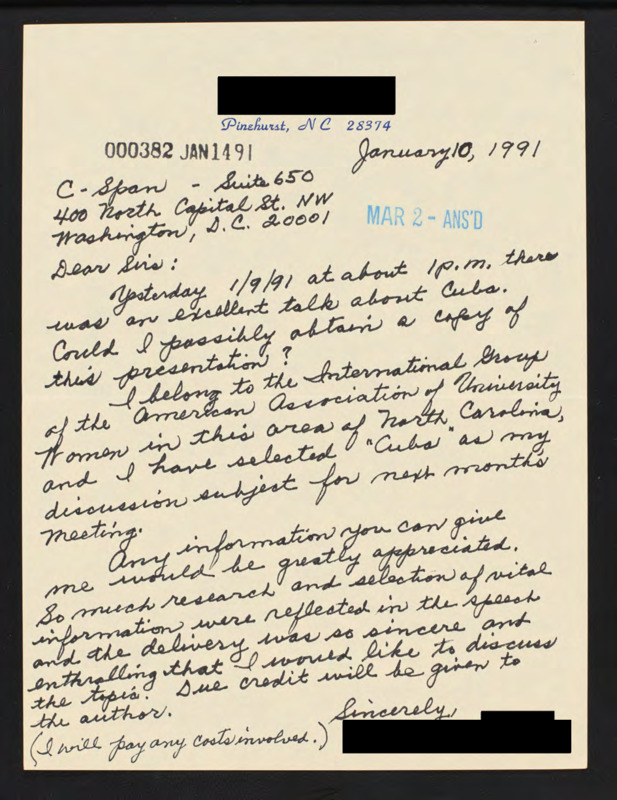 Pinehurst, NC 28374
000382 JAN1491
January 10, 1991
C-Span - Suite 650
400 North Capital St. NW
Washington, D.C. 20001
MAR 2 - ANS'D
Dear Sirs:
Yesterday 1/9/91 at about 1p.m. there
was an excellent talk about Cuba.
Could I possibly obtain a copy of
this presentation?
I belong to the International Group
of the American Association of University
Women in this area of North Carolina,
and I have selected "Cuba" as my
discussion subject for next month's
meeting.
Any information you can give
me would be greatly appreciated.
So much research and selection of vital
information were reflected in the speech
and the delivery was so sincere and
enthralling that I would like to discuss
the topic. Due credit will be given to
the author.
Sincerely,
(I will pay any costs involved.)